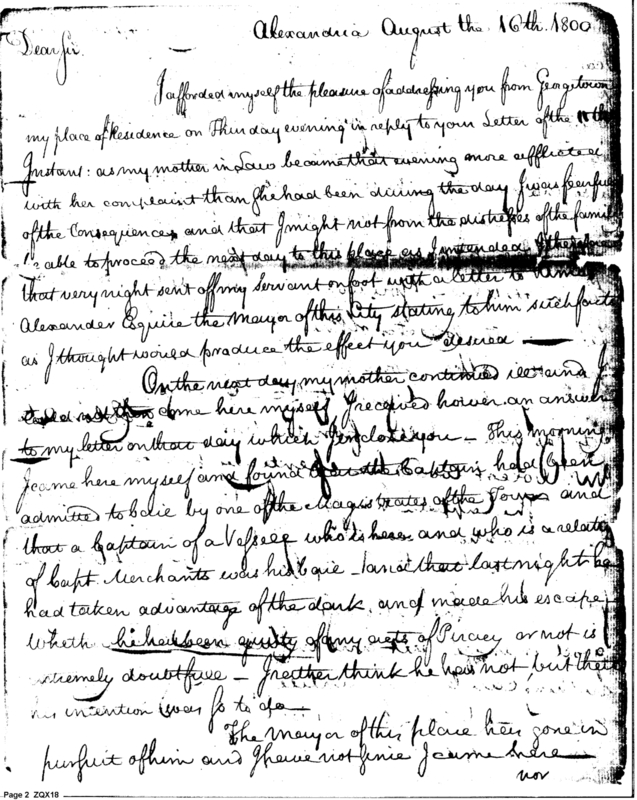 Alexandria August the 16th. 1800
Dear Sir.
I afforded myself the pleasure of addressing you from Georgetown
my place of Residence on Thursday evening in reply to your Letter of the
Instant: as my mother in Law became that evening more afflicted
with her complaint than she had been during the day I was fearful
of the Consequences and that I might not from the distresses of the family
be able to proceed the next day to this place as I intended I therefore
that very night sent off my servant on foot with a letter to
Alexander Esquire the Mayor of this City stating to him such facts
as I thought would produce the effect you desired
On the next day my mother continued ill and I
could not come here myself I received however an answer
to my letter on that day which I inclose you - This morning
I came here myself and found the Captain had been
admitted to Baile by one of the Magistrates of the Town and
that a Captain of a Vessell who is here and who is a relation
of Capt Merchants was his Baile - and that last night he
had taken advantage of the dark and made his escape
Wheth he had been guilty of any acts of Piracy or not is
extremely doubtfull - I rather think he has not, but that
his intention was so to do
The mayor of this place has gone in
pursuit of him and I have not since I came here
nor
Page 2 ZQX18